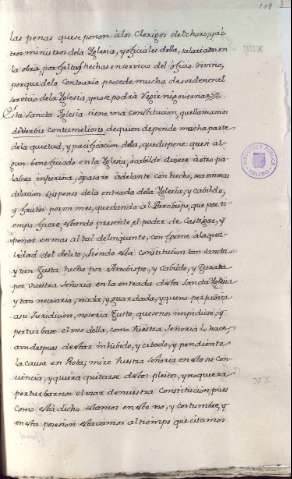 las penas que se ponen a los Clerigos del choro, y a o
tros ministros de la Yglesia, y oficiales della, salariados en
la obra, por faltas hechas en servicio del oficio Divino,
porque de lo Contrario procede mucha desorden en el
servicio de la Yglesia, y no se podria Regir ni governar
Esta Sancta Yglesia tiene una constitucion, que llamamos
de Verbis contumeliosis, de quien depende mucha parte
de la quietud, y pacificacion della, que dispone: que si al
gun beneficiado en la Yglesia, o cabildo dixere a otro pa
labra injuriosa, o passare adelante con hecho, sea sin mas
dilacion Expenso de la entrada de la Yglesia, y cabildo,
y frutos por un mes, quedando al Arcobispo, que por ti
empo fuere, estando presente el poder de Castigar, y
penar en mas al tal delinquente, conforme a la qua
lidad del delito, siendo esta constitucion tan sancta
y tan Justa, hecha por Arcobispo, y Cabildo, y Jurada
por Vuestra Señoria en la entrada desta Sancta Yglesia
y tan necessaria, usada, y guardada, y que no perjudica
a su Jurisdicion, no seria Justo, querernos impedir, y
perturbar el uso della, como Vuestra Señoria lo hace
aun despues de estar inhibido, y citado, y pendiente
la causa en Rota; mire Vuestra Señoria en esto su con
ciencia, y quiera quitarse destos pleitos, y no quiera
perturbarnos el uso de nuestra Constitucion, pues
como esta dicho estamos en este uso, y costumbre, y
en esta posesion estavamos al tiempo que citamos